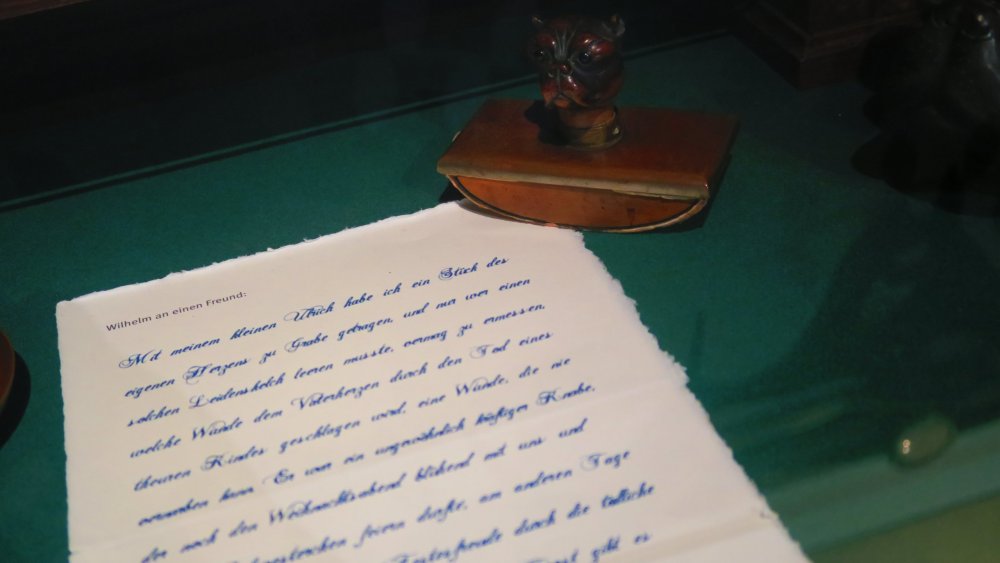 Wilhelm an einen Freund:
Mit meinem kleinen Ulrich habe ich ein Stück des
eigenen Herzens zu Grabe getragen, und nur wer einen
solchen Leidenskelch leeren musste, vermag zu ermessen,
welche Wunde dem Vaterherzen durch den Tod eines
theuren Kindes geschlagen wird, eine Wunde, die nie
vernarben kann. Er war ein ungewöhnlich kräftiger Knabe,
der noch den Weihnachtsabend blühend mit uns und
feiern durfte, am anderen Tage
Festesfreude durch die tödliche
gibt es